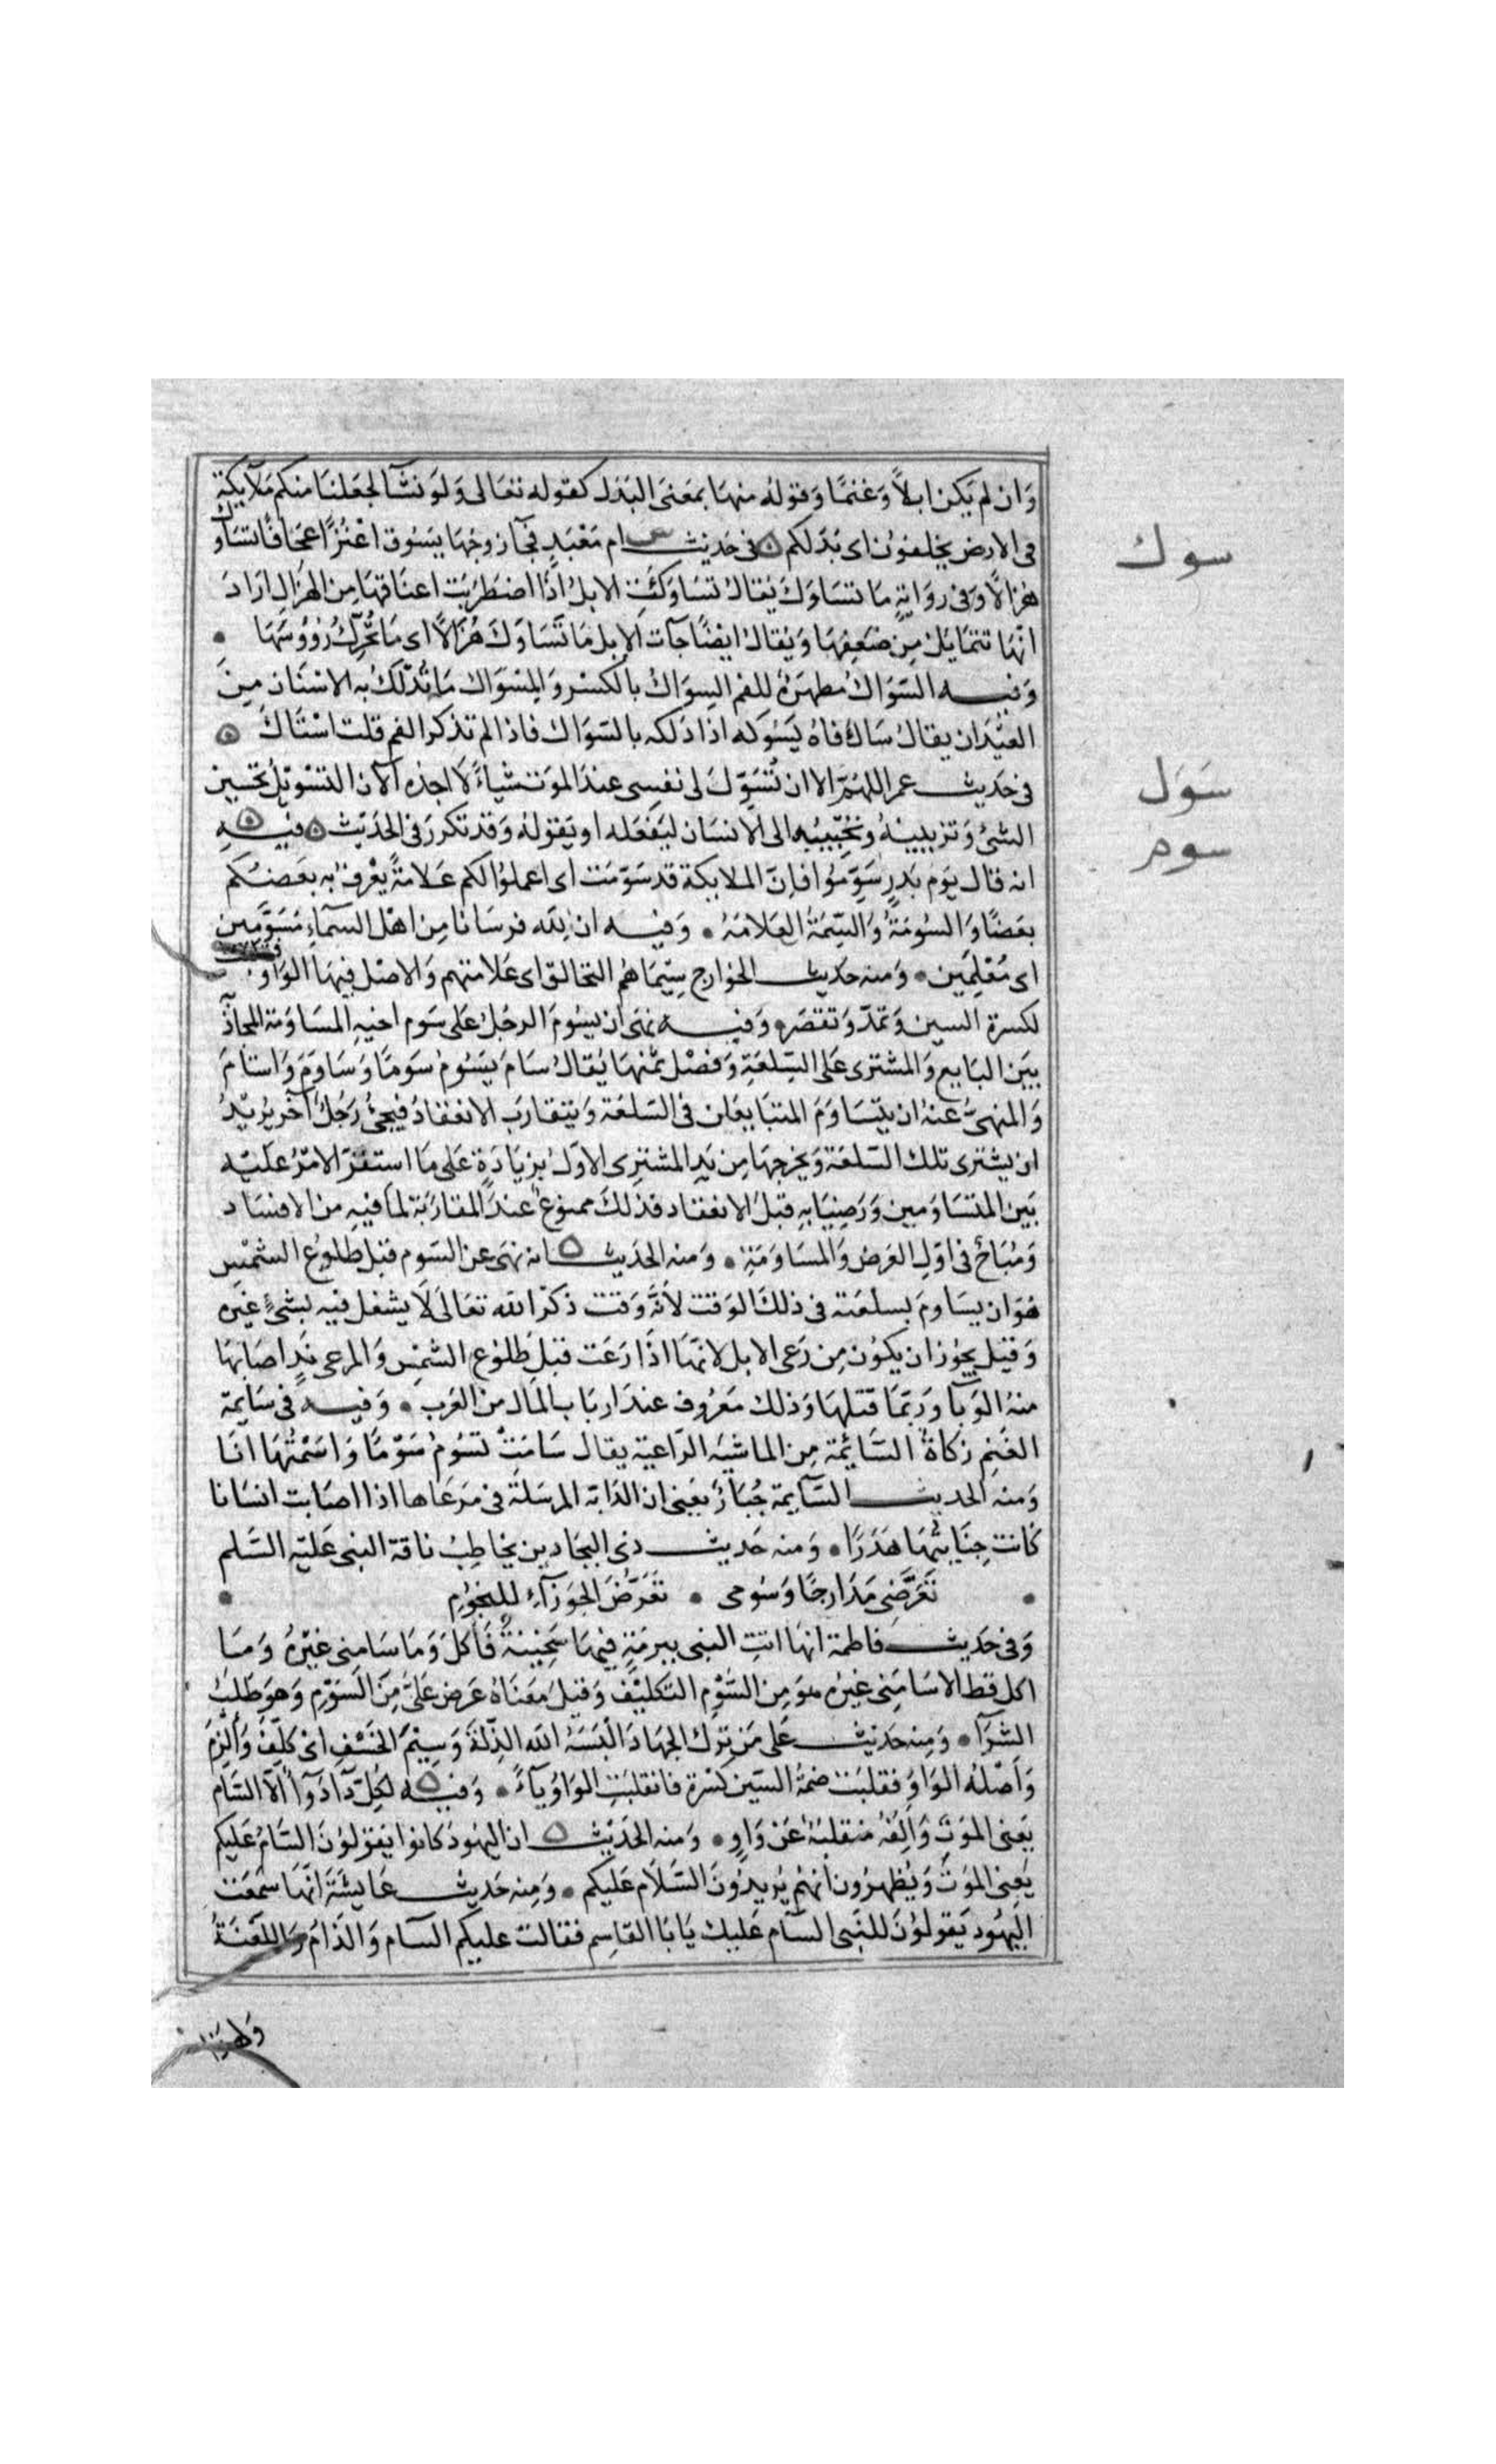 وَان لم يَكن ابلاً وَغنمًا وَقولهُ منهَا بمعَنىَ البَدَل كقوله تعَالى وَلوَ نشَآ لجعَلنَا منكم مَلآيكة
فى الارض يخلفوُن اى بَدَلكم فى حَديث ام مَعْبَدٍ فجآ زوجُهَا يَسُوق اعْنُزًا عجَافًا تسَاوَك
هزالًا وَفى روَايةٍ مَا تسَاوَك يُقالُ تسَاوَكَتِ الابلُ اذَا اضطَرَبَت اعنَاقهَا مِن الهزَالِ ارَادَ
انّهَا تتمَايَل مِن ضعَفِهَا وَيُقالُ ايضًا جآت الابل مَا تَسَاوَك هُزَالًا اى مَا تُحَرِّكُ رُؤُوسَهَا
وَفيه السّوَاكُ مطهرَةٌ للفم السِوَاكُ بالكسْر وَالمِسْوَاك مَا تُدْلَكُ بهِ الاسْنَان مِنَ
العيْدَان يقالُ سَاكَ فاهُ يَسُوَكه اذا دَلكه بالسّوَاك فاذا لم تذكر الفم قلت اسْتَاكَ
فى حَديث عمر اللهُمّ الا ان تُسَوّلَ لى نفسِى عندَ الموَت شيأً لَا اجدُه الآن التسْوِيْلُ تحْسين
الشئ وَتزيينُهُ وتُحَبِّبُه الى الانسَان ليَفعَله او يَقولهُ وَقد تكررَ فى الحَديث فيه
انه قال يَوم بَدرٍ سَوِّمُوا فانّ الملايكة قد سَوّمَت اى اعملوُا لكم عَلامَةً يعْرف به بعَضكُم
بعَضًا وَالسُومَةُ وَالسِّمَةُ العَلامَةُ وَفيه ان لله فرسَانا مِن اهْل السّمَآءِ مُسَوَّمَين
اى مُعْلِمَين وَمنه حدَيث الخوَارج سِيْمَاهُم التحَالق اى عَلامتهم وَالاصْل فيهَا الوَاو
لكسرة السين وَتمدّ وَتقصَر وَفيه نهَى ان يسُومَ الرجُل عَلى سَوم اخيهِ المسَاوَمة المجاذَبَة
بيَن البَايع وَالمشترى عَلى السِّلعَةِ وَفصْل ثمَنهَا يُقالُ سَامَ يَسُومُ سَومًا وَسَاوَمَ وَاستامَ
وَالمنهىّ عنهُ ان يتسَاوَمَ المتبَايعَان فى السّلعَة وَيتقارَب الانعقَادُ فيجئُ رَجُلٌ آخر يُريْدُ
ان يشترى تلك السّلعَة وَيخرجهَا مِن يَدِ المشترِى الاوّل بزيَادَةٍ عَلى مَا استقرّ الامْرُ عَليْه
بَين المتسَاوَمين وَرَضِيَا به قبلَ الانعقاد فذلكَ ممنوُع عندَ المقارَبَة لمَا فيهِ من الافسَاد
وَمُبَاحٌ فى اوّلِ العَرَض وَالمسَاوَمَةِ وَمنه الحدَيث انه نهَى عن السّوم قبل طلوُع الشمْسِ
هُوَ ان يسَاومَ بسلعَته فى ذلكَ الوَقت لأنَّه وَقت ذكرُ الله تعَالَى لَا يشغل فيه بشئٍ غيَره
وَقيَل يجوُز ان يكوُن مِن رَعى الابل لانّهَا اذَا رَعَت قبلَ طلوُع الشمْس وَالمرعى نَدٍ اصَابهَا
منهُ الوَبآ وَربّمَا قتلهَا وَذلك مَعرُوف عندَ اربَاب المَال من العَرب وَفيه فى سَايمة
الغَنمِ زكاةٌ السَّائِمَة مِن الماشيَه الرّاعية يقال سَامَتْ تسُومُ سَوْمًا وَاسَمْتُهَا انَا
وَمنه الحديث السّآيمة جُبَارٌ يَعنى ان الدّابَة المرسَلَة فى مَرعَاهَا اذا اصَابت انسَانا
كَانت جِنَايتُهَا هَدَرًا وَمنه حَديث ذى البجَادين يخاطِبُ ناقة النبى عَليْه السَّلم
تَعَرَّضِى مَدَارجًا وَسُومى تَعَرّضَ الجوَزَآءِ للنجُومِ
وَفى حَديث فاطمة انهَا اتتِ النبى ببرمَةٍ فيهَا سَخِيْنَةٌ فَأكلَ وَمَا سَامنِى غيْرُهُ وَمَا
اكل قط الا سَامَنِى غيرَهُ هوَ مِن السَّوْمِ التكليْف وَقيلَ معَنَاهُ عَرض عَلَىَّ مِنَ السَوْمِ وَهوَ طَلَبُ
الشّرَآ وَمِنه حدَيث عَلى مَن ترَكَ الجهَادَ الْبَسَهُ اللهُ الذِّلَّةَ وَسِيْمَ الخَسْف اىْ كُلّفَ وَأُلزِمَ
وَأصْلهُ الوَاوُ فقلبَت ضمةُ السّين كسْرَة فانقلبَتِ الوَاوُ يآءً وَفيه لكُلِّ دَآ دَوَآً الَّا السَّام
يَعنِى الموَتَ وَالِفُهُ منقلبَة عَن وَاوٍ وَمنه الحَديْث ان اليَهُودَ كانوا يَقوُلوُنَ السّامُ عَليكم
يَعِنى الموَتَ وَيُظهرُون انهُم يُريدُونَ السَّلَام عَليكم وَمِنه حَديث عَايشَةَ انّهَا سَمعَت
اليهُود يَقولوُنَ للنَّبى السآم عَليك يَابَا القَاسِم فقالت عليكم السآم وَالذّامُ وَاللعَنَةُ
وَلهذا
سوك
سَوَل
سوم